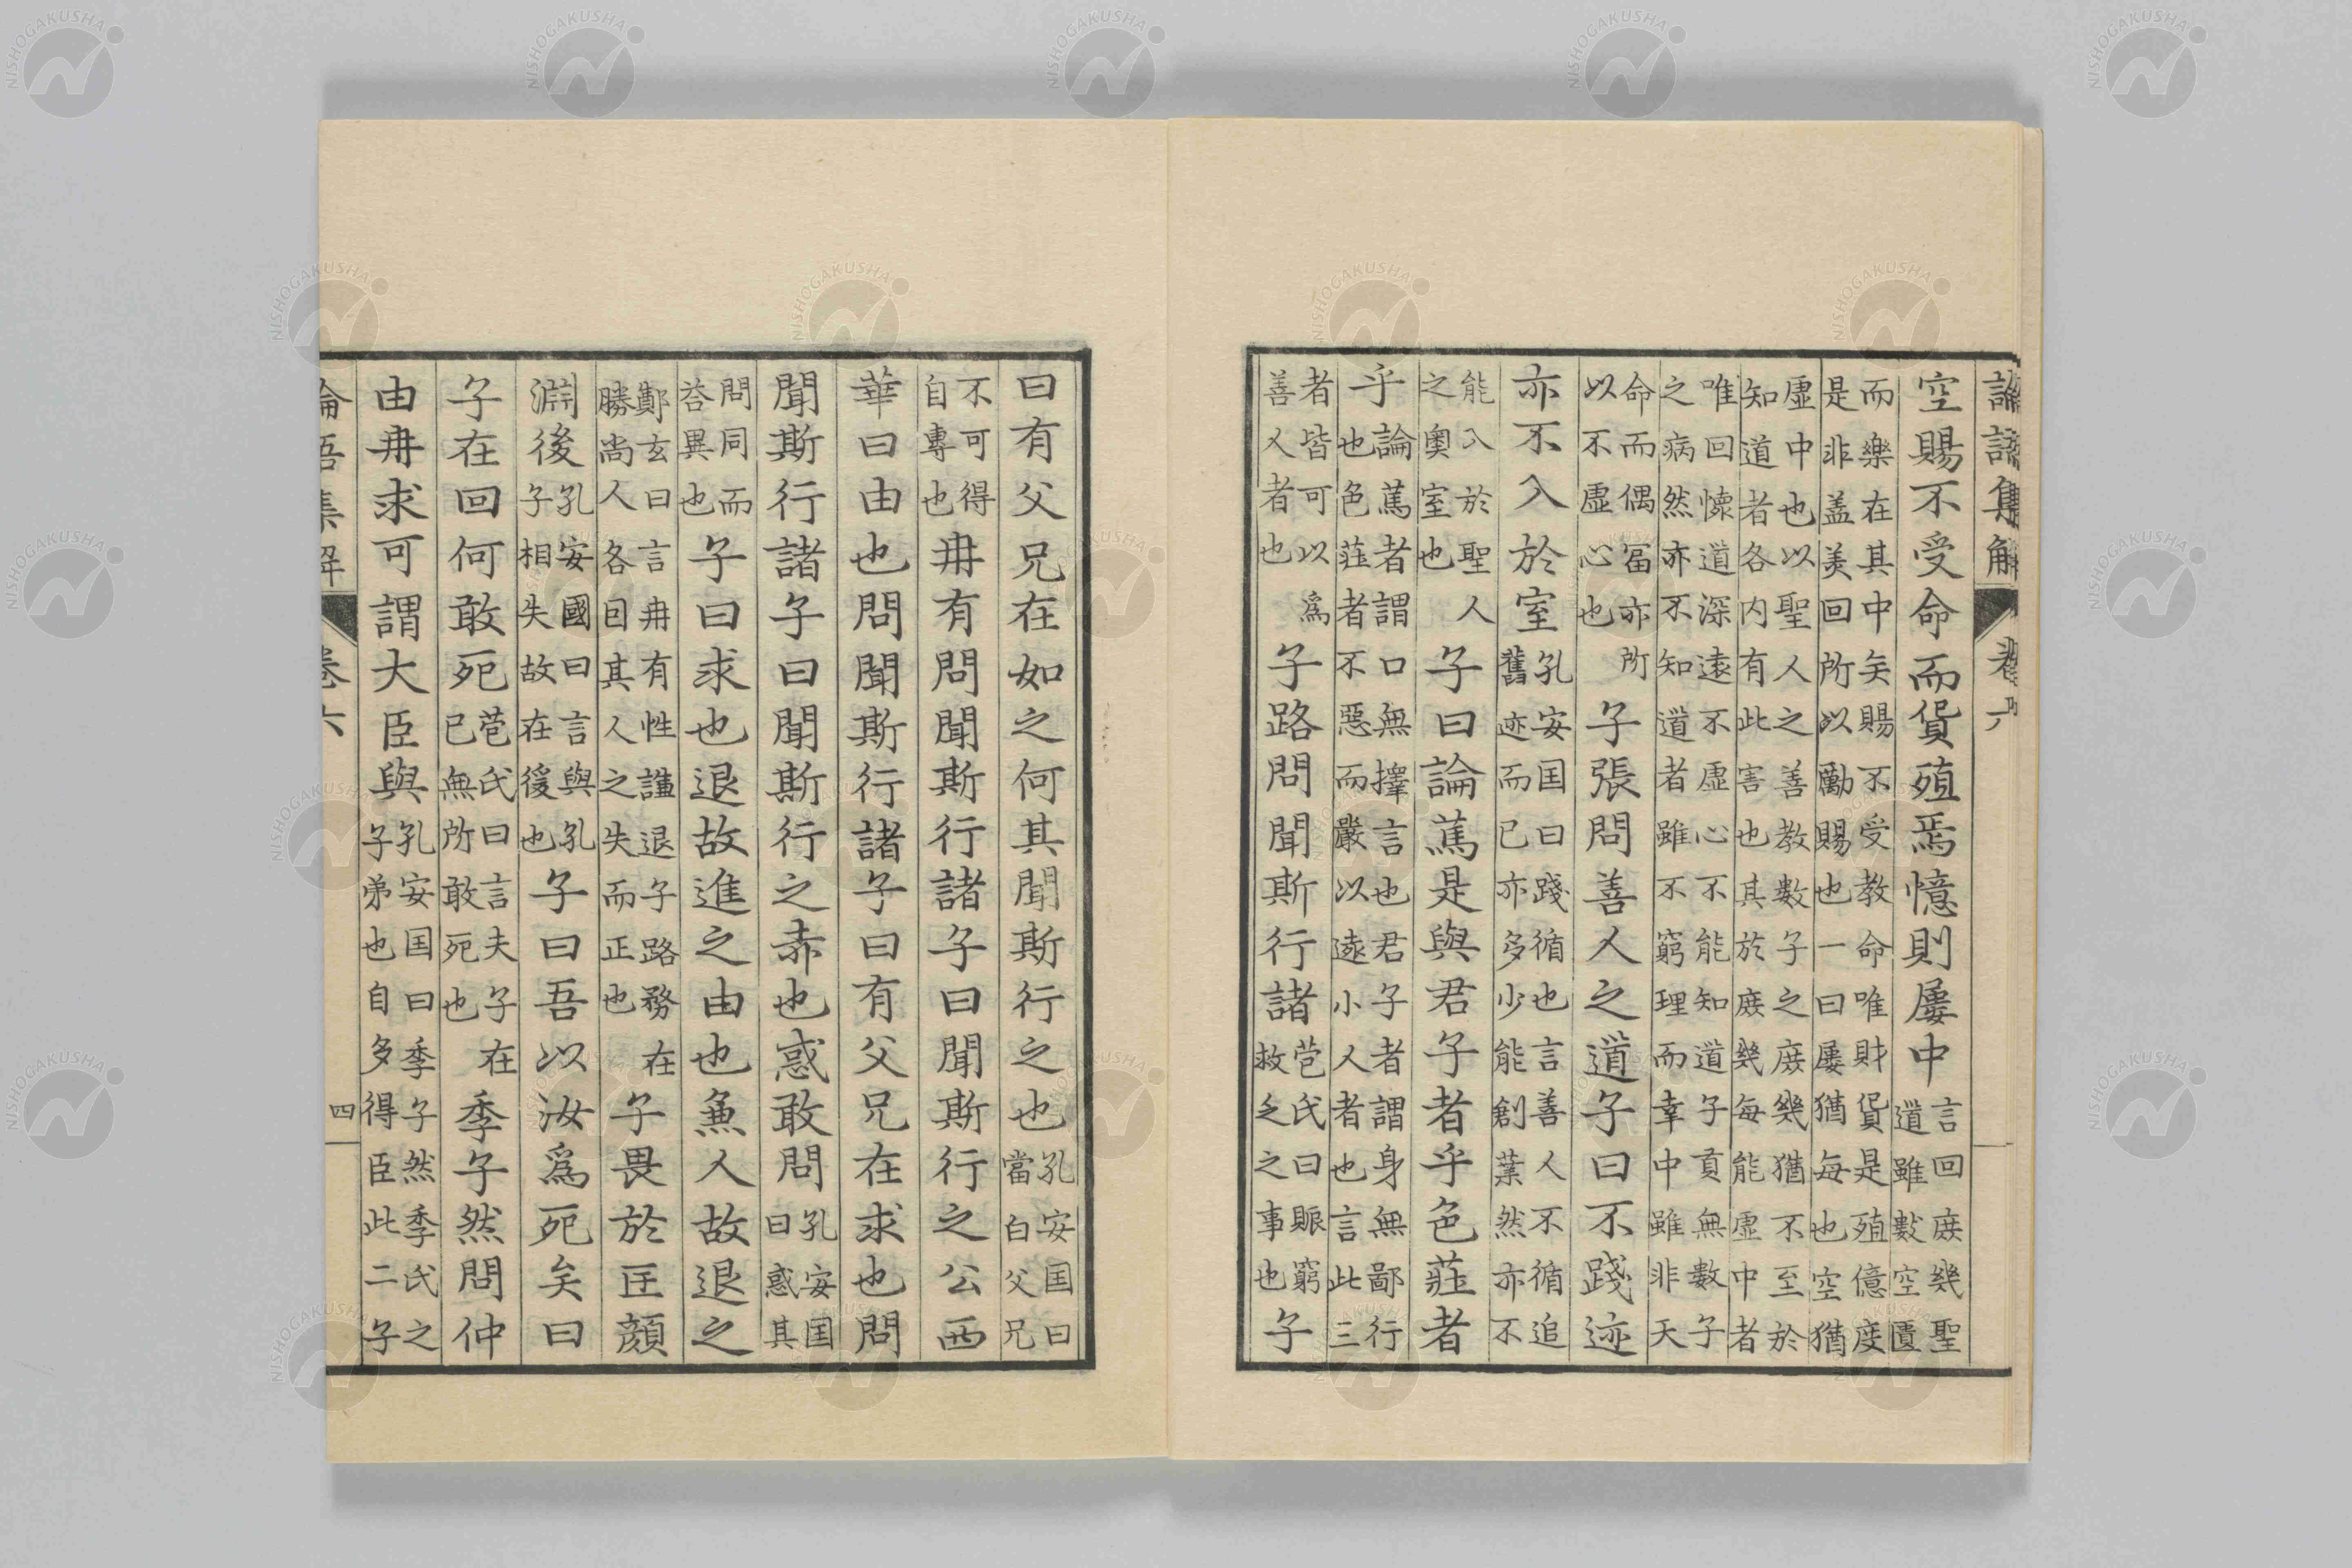 論語集解 卷六
空賜不受命而貨殖焉憶則屢中言回庶幾聖
道雖數空匱
而樂在其中矣賜不受教命唯財貨是殖億度
是非盖美回所以勵賜也一曰屢猶每也空猶
虛中也以聖人之善教數子之庶幾猶不至於
知道者各内有此害也其於庶幾每能虛中者
唯回懐道深遠不虛心不能知道子貢無數子
之病然亦不知道者雖不窮理而幸中雖非天
命而偶冨亦所
以不虛心也子張問善人之道子曰不踐迹
亦不入於室孔安国曰踐循也言善人不循追
舊迹而已亦多少能創業然亦不
能入於聖人
之奧室也子曰論篤是與君子者乎色莊者
乎論篤者謂口無擇言也君子者謂身無鄙行
也色莊者不惡而嚴以遠小人者也言此三
者皆可以爲
善人者也子路問聞斯行諸苞氏曰賑窮
救乏之事也子
曰有父兄在如之何其聞斯行之也孔安国曰
當白父兄
不可得
自專也冉有問聞斯行諸子曰聞斯行之公西
華曰由也問聞斯行諸子曰有父兄在求也問
聞斯行諸子曰聞斯行之赤也惑敢問孔安国
曰惑其
問同而
荅異也子曰求也退故進之由也兼人故退之
鄭玄曰言冉有性謙退子路務在
勝尚人各因其人之失而正也子畏於匡顔
淵後孔安國曰言與孔
子相失故在後也子曰吾以汝爲死矣曰
子在回何敢死苞氏曰言夫子在
已無所敢死也季子然問仲
由冉求可謂大臣與孔安国曰季子然季氏之
子弟也自多得臣此二子
論語集解 卷六 四
NISHOGAKUSHA